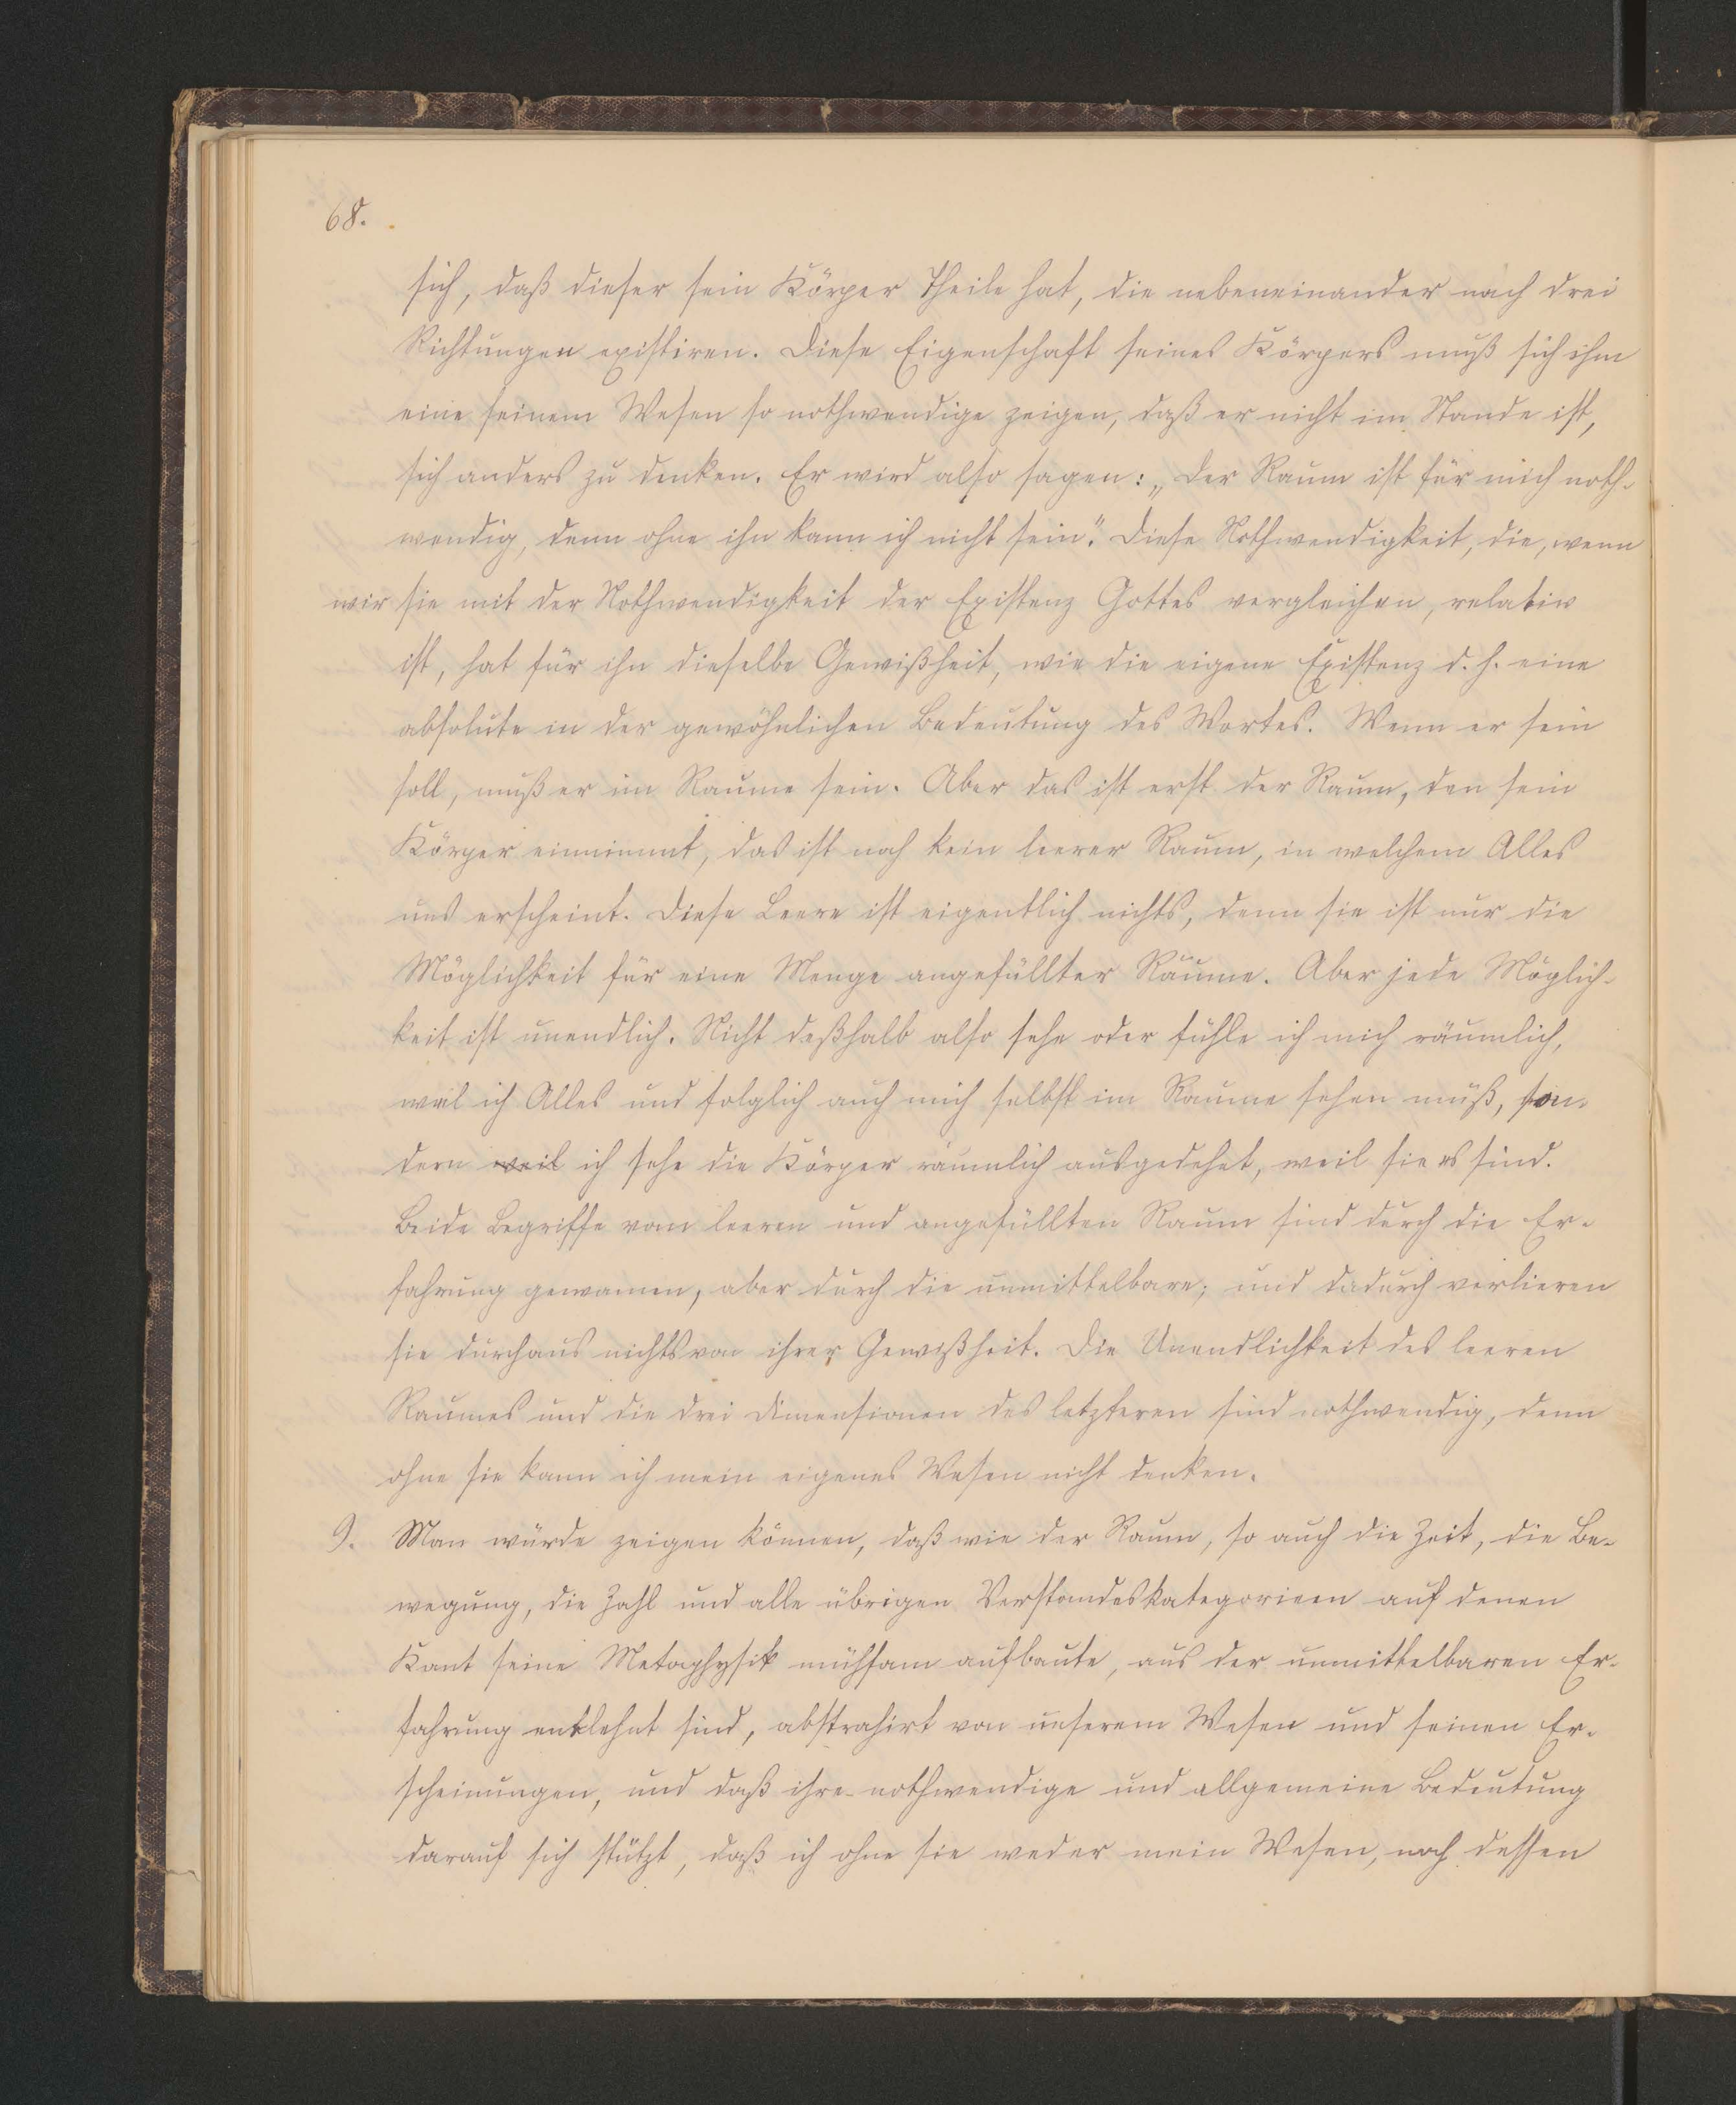 68.
sich, daß dieser sein Körper Theile hat, die nebeneinander nach drei
Richtungen existiren. Diese Eigenschaft seines Körpers muß sich ihm
eine seinem Wesen so nothwendige zeigen, daß er nicht im Stande ist,
sich anders zu denken. Er wird also sagen: „Der Raum ist für mich noth-
wendig, denn ohne ihn kann ich nicht sein“. Diese Nothwendigkeit, die, wenn
wir sie mit der Nothwendigkeit der Existenz Gottes vergleichen, relativ
ist, hat für ihn dieselbe Gewißheit, wie die eigene Existenz d. h. eine
absolute in der gewöhnlichen Bedeutung des Wortes. Wenn er sein
soll, muß er im Raume sein. Aber das ist erst der Raum, den sein
Körper einnimmt, das ist noch kein leerer Raum, in welchem Alles
uns erscheint. Diese Leere ist eigentlich nichts, denn sie ist nur die
Möglichkeit für eine Menge angefüllter Räume. Aber jede Möglich-
keit ist unendlich. Nicht deßhalb also sehe oder fühle ich mich räumlich,
weil ich Alles und folglich auch mich selbst im Raume sehen muß, son-
dern weil ich sehe die Körper räumlich ausgedehnt, weil sie es sind.
Beide Begriffe vom leeren und angefüllten Raum sind durch die Er-
fahrung gewonnen, aber durch die unmittelbare; und dadurch verlieren
sie durchaus nichts von ihrer Gewißheit. Die Unendlichkeit des leeren
Raumes und die drei Dimensionen des letzteren sind nothwendig, denn
ohne sie kann ich mein eigenes Wesen nicht denken.
9. Man würde zeigen können, daß wie der Raum, so auch die Zeit, die Be-
wegung, die Zahl und alle übrigen Verstandeskategorieen auf denen
Kant seine Metaphysik mühsam aufbaute, aus der unmittelbaren Er-
fahrung entlehnt sind, abstrahirt von unserem Wesen und seinen Er-
scheinungen, und daß ihre nothwendige und allgemeine Bedeutung
darauf sich stützt, daß ich ohne sie weder mein Wesen, noch dessen